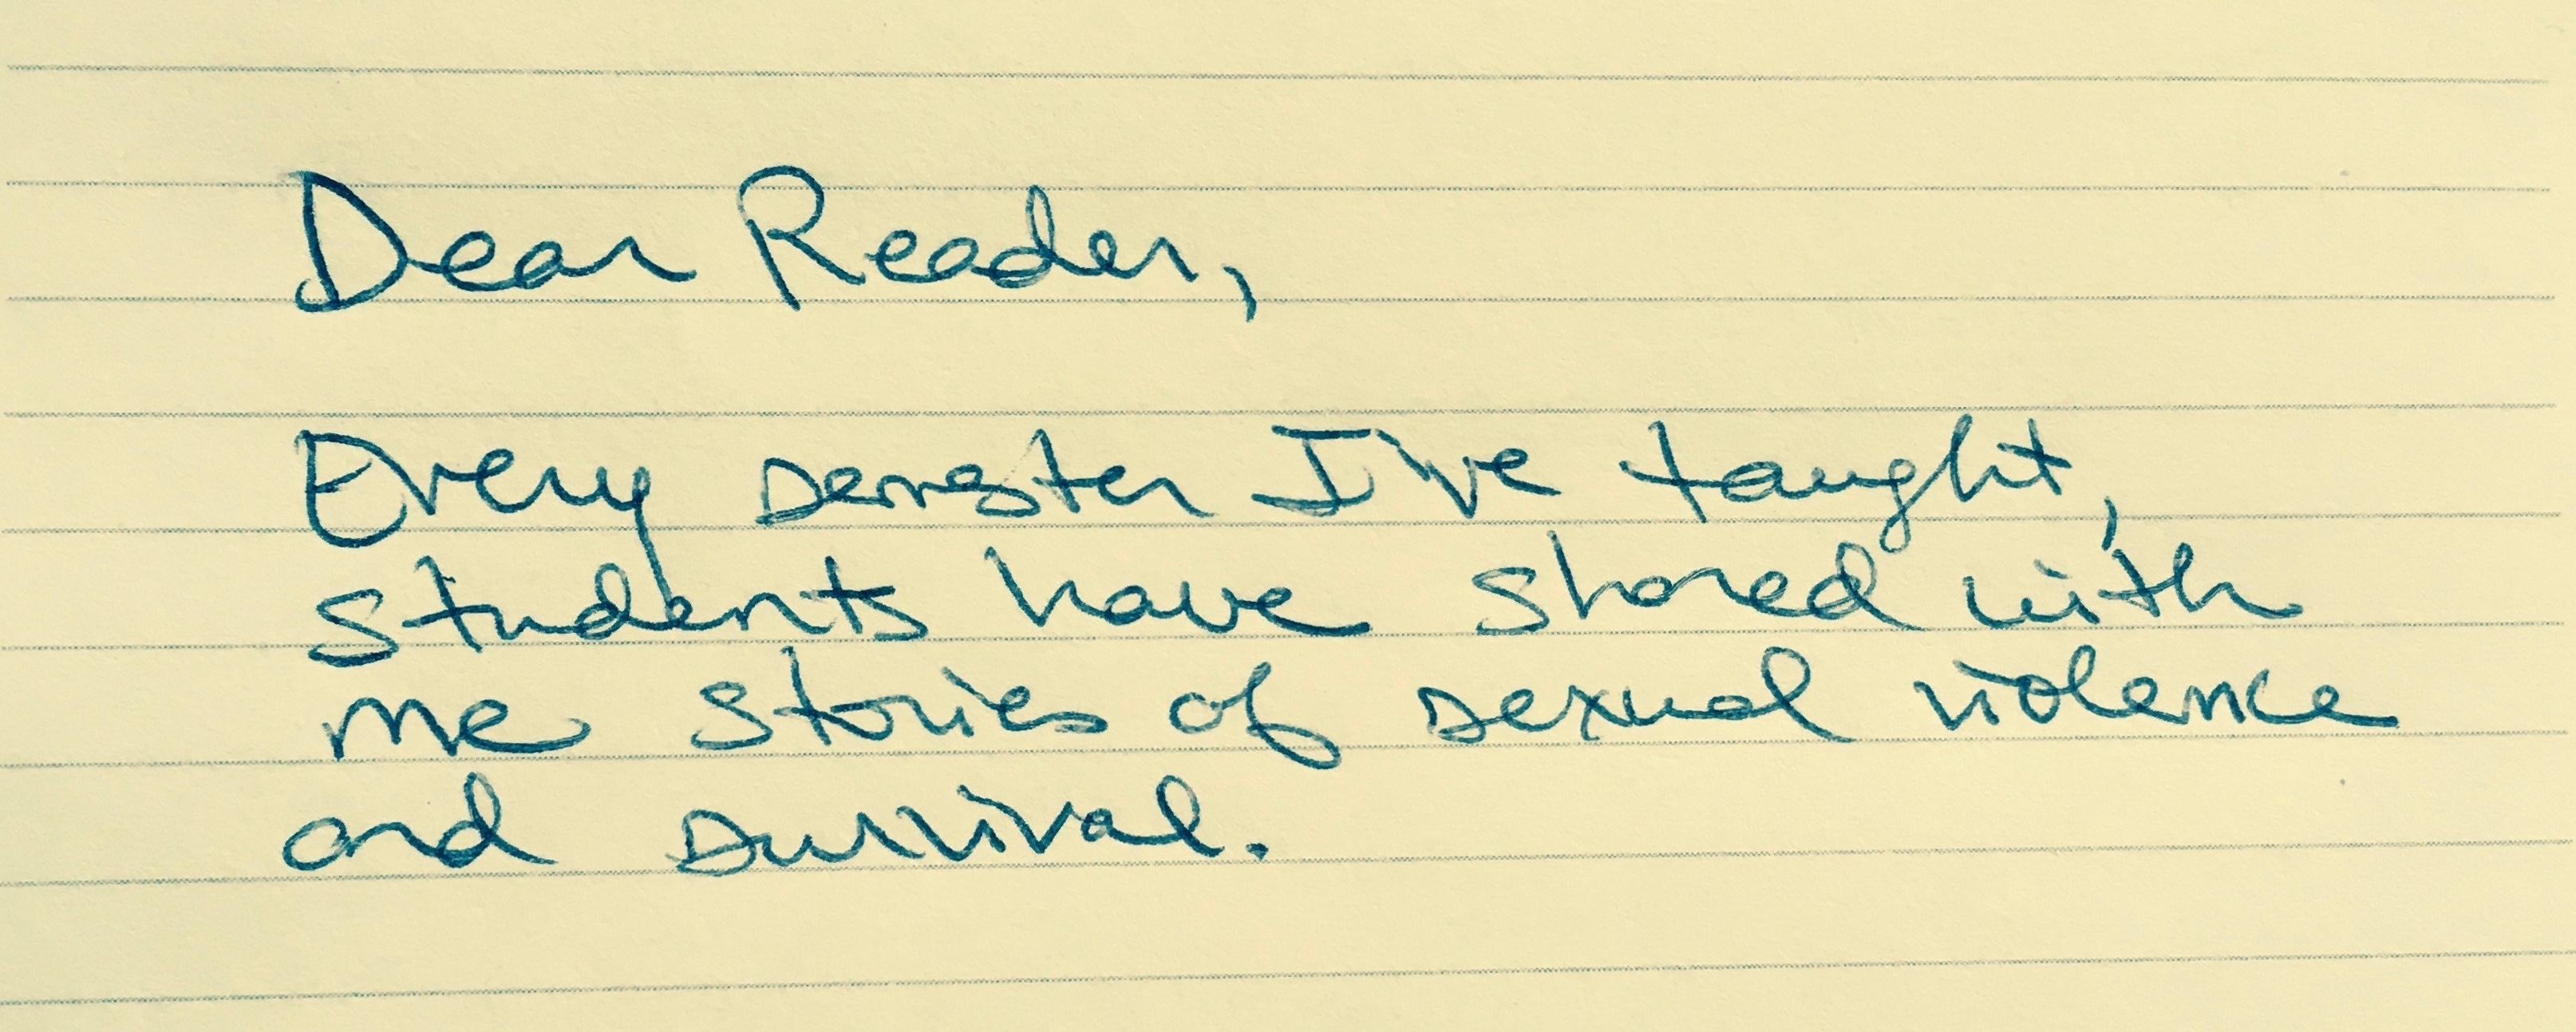 Dear Reader,
Every semester I've taught,
students have shared with
me stories of sexual violence
and survival.